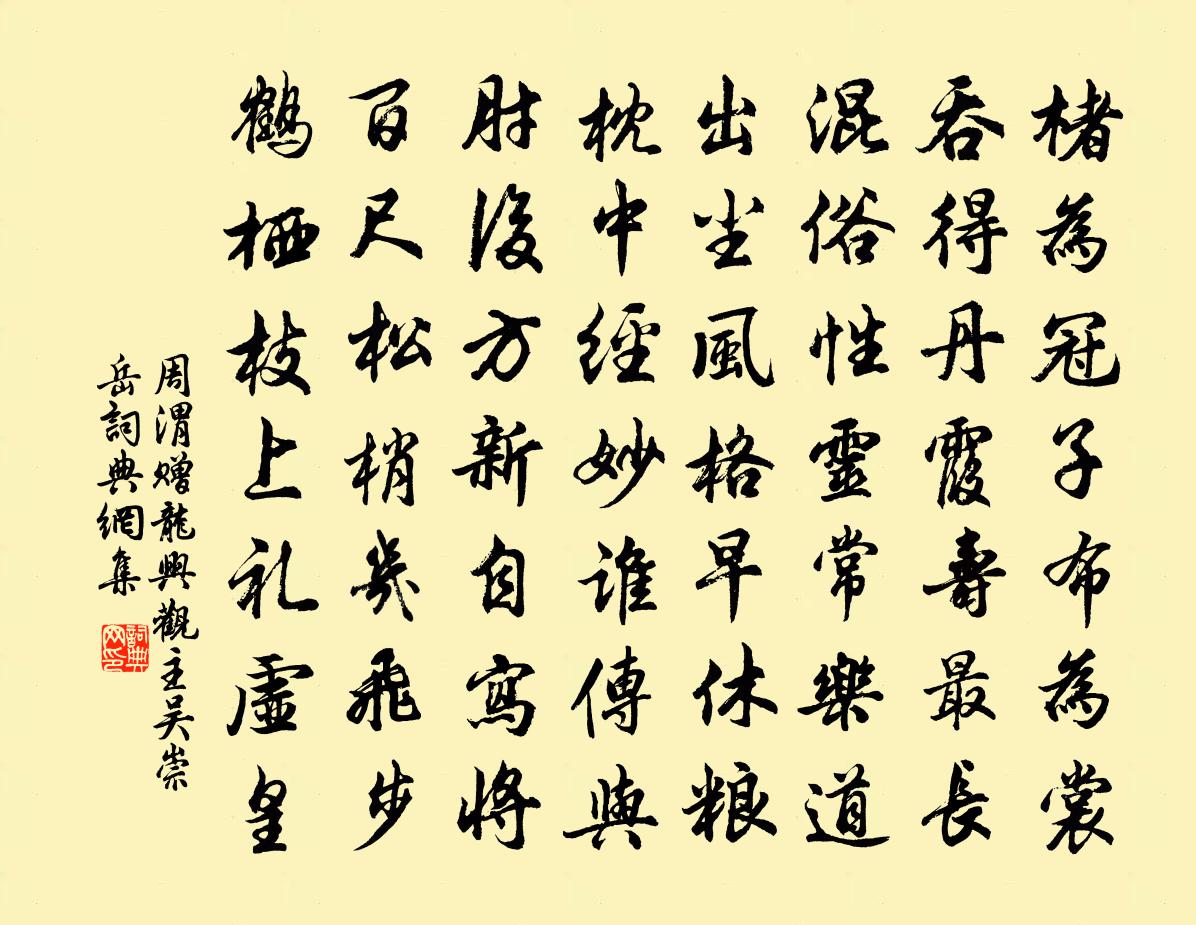 楮為冠子布為裳
吞得丹霞壽最長
混俗性靈常樂道
出尘風格早休粮
枕中經妙誰傳與
肘後方新自寫將
百尺松梢幾飛步
鶴栖枝上礼虛皇
周渭贈龍興觀主吴崇
岳詞典網集
詞典
网印